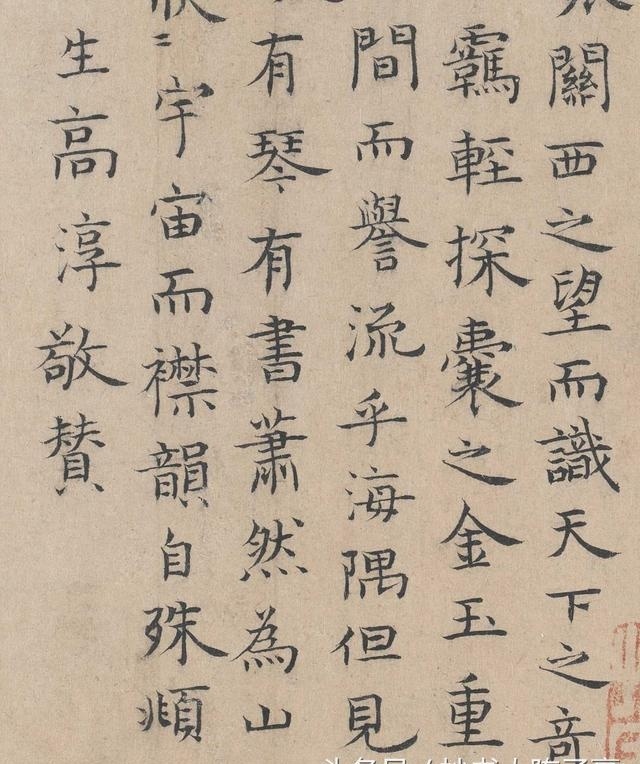 關西之望而識天下之竒
覊輕探囊之金玉重
間而譽流乎海隅但見
有琴有書蕭然為山
宇宙而襟韻自殊頫
生高淳敬賛